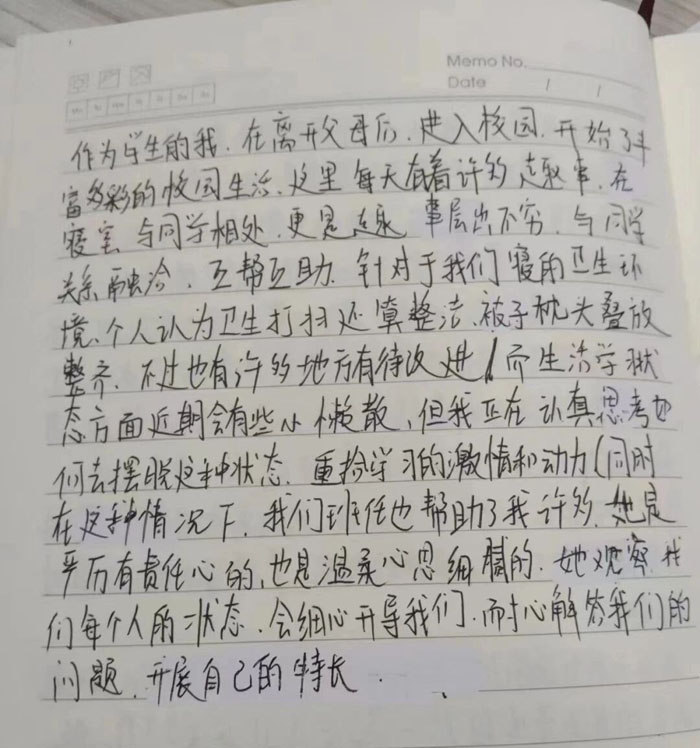 Memo No.
Date / /
作为学生的我.在离开父母后.进入校园.开始了丰
富多彩的校园生活.这里每天有着许多趣事.在
寝室与同学相处.更是趣事层出不穷.与同学
关系融洽.互帮互助.针对于我们寝的卫生环
境、个人认为卫生打扫还算整洁.被子枕头叠放
整齐.不过也有许多地方有待改进/而生活学习状
态方面近期会有些小懒散,但我正在认真思考如
何去摆脱这种状态.重拾学习的激情和动力(同时
在这种情况下.我们班任也帮助了我许多.她是
严厉有责任心的,也是温柔心思细腻的.她观察我
们每个人的状态.会细心开导我们.耐心解答我们的
问题.开展自己的特长.